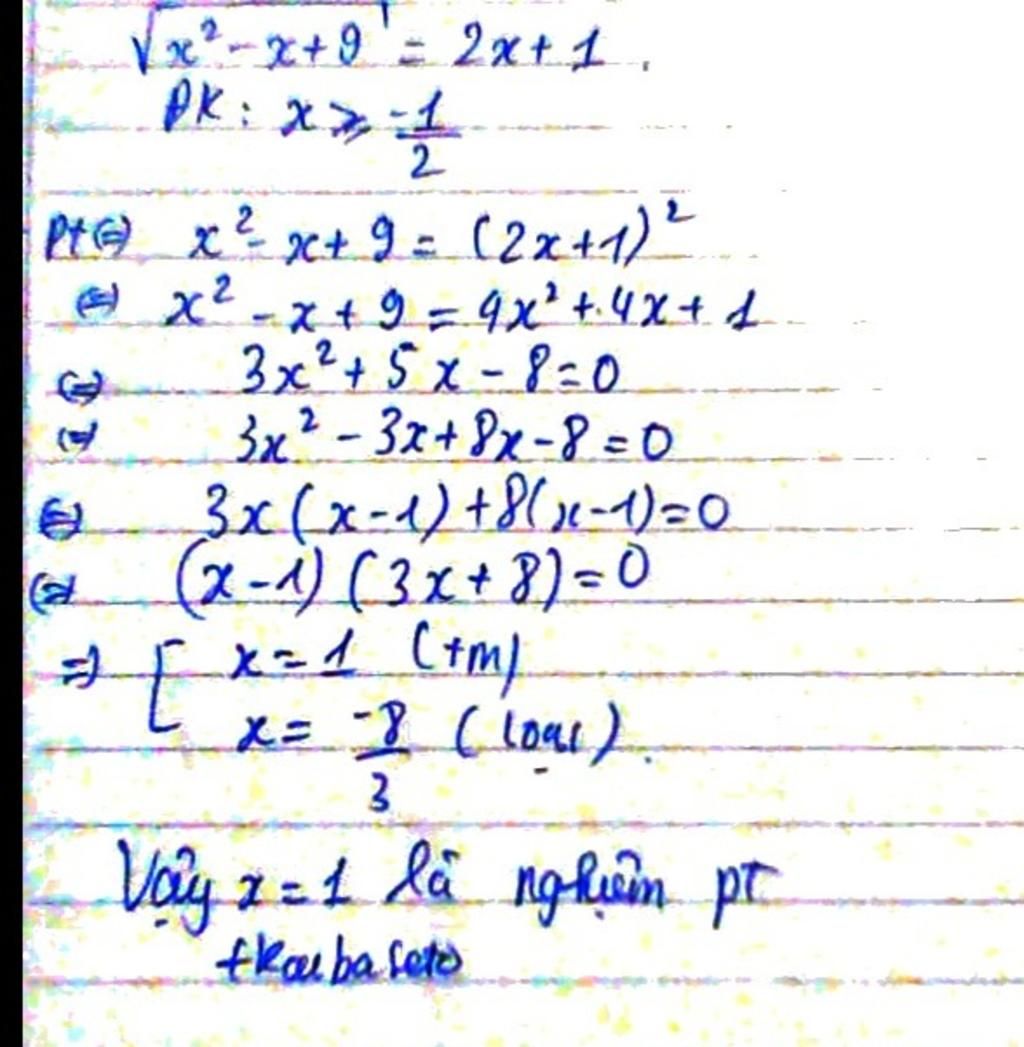 √(x² - x + 9) = 2x + 1.
ĐK: x ≥ -1/2
Pt ⇔ x² - x + 9 = (2x + 1)²
⇔ x² - x + 9 = 4x² + 4x + 1
⇔ 3x² + 5x - 8 = 0
⇔ 3x² - 3x + 8x - 8 = 0
⇔ 3x(x - 1) + 8(x - 1) = 0
⇔ (x - 1)(3x + 8) = 0
⇒ [ x = 1 (tm)
x = -8/3 (loại).
Vậy x = 1 là nghiệm pt